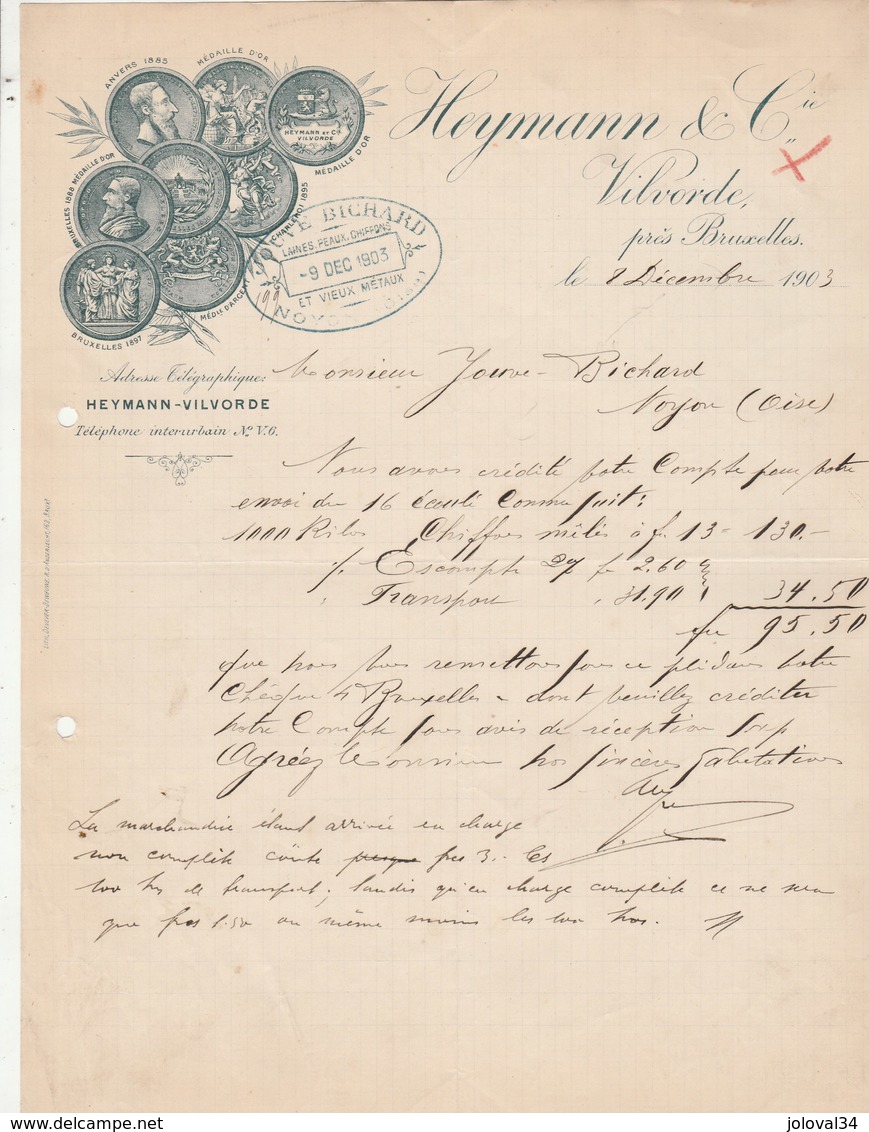 ANVERS 1885
MÉDAILLE D'OR
HEYMANN ET Cº
VILVORDE
MÉDAILLE D'OR
BRUXELLES 1888 MÉDAILLE D'OR
CHARLEROI 1895
MÉDLE D'ARGENT
BRUXELLES 1897
Heymann & Cie
Vilvorde,
près Bruxelles.
le 8 Décembre 1903
JOUVE BICHARD
LAINES, PEAUX, CHIFFONS
-9 DEC 1903
ET VIEUX METAUX
NOYON (OISE)
Adresse Télégraphique:
HEYMANN-VILVORDE
Téléphone interurbain Nº V.6.
Monsieur Jouve-Bichard
Noyon (Oise)
Nous avons crédité votre Compte pour votre
envoi du 16 écoulé comme suit:
1000 Kilos Chiffons mêlés à fr 13 = 130.-
% Escompte 2% fr 2.60
" Transport " 31.90 34.50
fr 95.50
que nous vous remettons sous ce pli dans votre
Chèque s/ Bruxelles - dont veuillez créditer
notre Compte sous avis de réception svp
Agréez Monsieur nos sincères salutations
La marchandise étant arrivée en charge
non complète coûte presque frs 3.- les
100 ks de transport; tandis qu'en charge complète ce ne sera
que frs 1.50 ou même moins les 100 kos.
joloval34